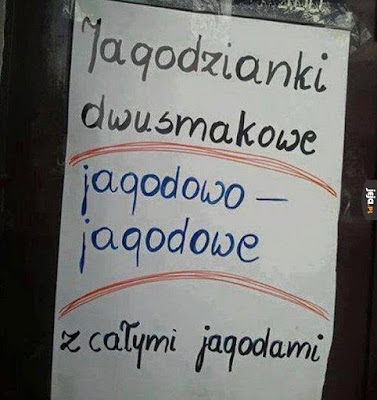 Jagodzianki
dwusmakowe
jagodowo –
jagodowe
z całymi jagodami
jeja.pl